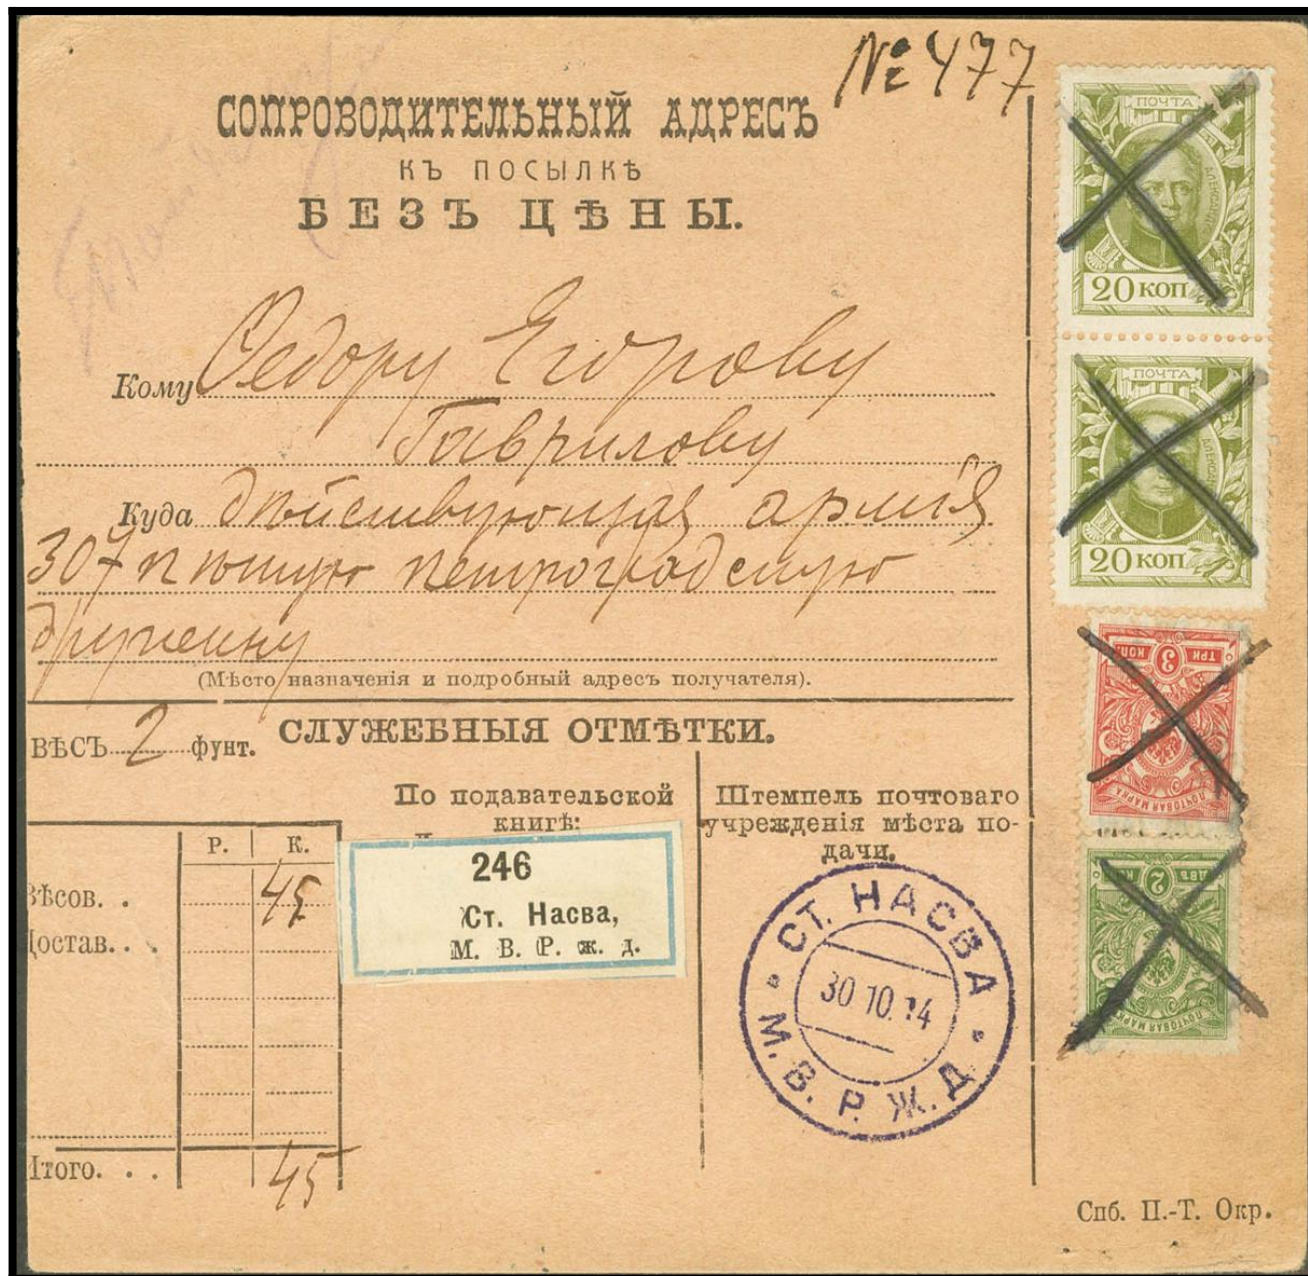 № 477
СОПРОВОДИТЕЛЬНЫЙ АДРЕСЪ
КЪ ПОСЫЛКѢ
БЕЗЪ ЦѢНЫ.
Кому Ѳедору Егорову
Гаврилову
Куда дѣйствующая армія
307 пѣшую петроградскую
дружину
(Мѣсто назначенія и подробный адресъ получателя).
ВѢСЪ 2 фунт.
СЛУЖЕБНЫЯ ОТМѢТКИ.
Р. К.
Вѣсов. . 45
Достав. . .
Итого. . . 45
По подавательской
книгѣ:
246
Ст. Насва,
М. В. Р. ж. д.
Штемпель почтоваго
учрежденія мѣста по-
дачи.
СТ. НАСВА
30 10.14
М. В. Р. Ж. Д.
ПОЧТА
АЛЕКСАНД
20 КОП
ПОЧТА
АЛЕКСАНД
20 КОП
3
ТРИ КОП.
ПОЧТОВАЯ МАРКА
2
ДВѢ КОП
ПОЧТОВАЯ МАРКА
Спб. П.-Т. Окр.